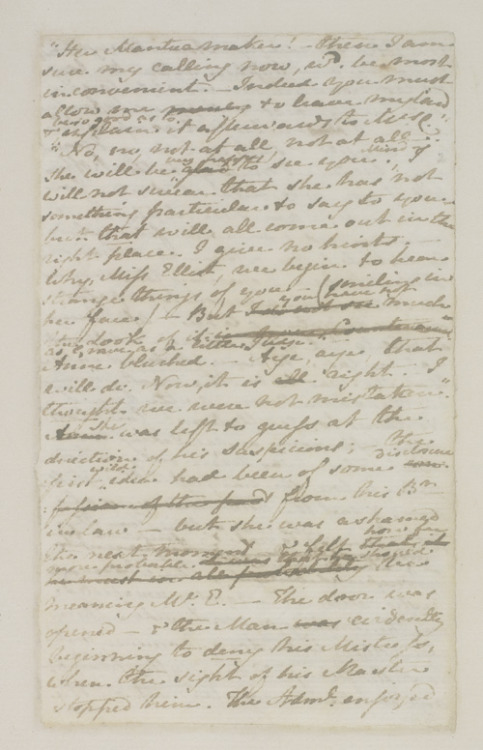 "Her Mantuamaker! – Then I am
sure my calling now, wd. be most
inconvenient. – Indeed you must
allow me to leave my Card
& be so good as to
explain it afterwards to Mrs. C."
"No, no, not at all, not at all.
She will be very happy to see you. Mind – I
will not swear that she has not
something particular to say to you –
but that will all come out in the
right place. I give no hints. –
Why, Miss Elliot, we begin to hear
strange things of you – (smiling in
her face) – But you have not much
the Look of it –
as Grave as a little Judge." –
Anne blushed. – "Aye, aye, that
will do. Now, it is all right. I
thought we were not mistaken."
She was left to guess at the
direction of his Suspicions; – the
first wild idea had been of some disclosure
from his Br.
in law – but she was ashamed
the next moment – & felt how far
more probable that he should
be
meaning Mr. E. – The door was
opened – & the Man was evidently
beginning to deny his Mistress,
when the sight of his Master
stopped him. The Adml. enjoyed